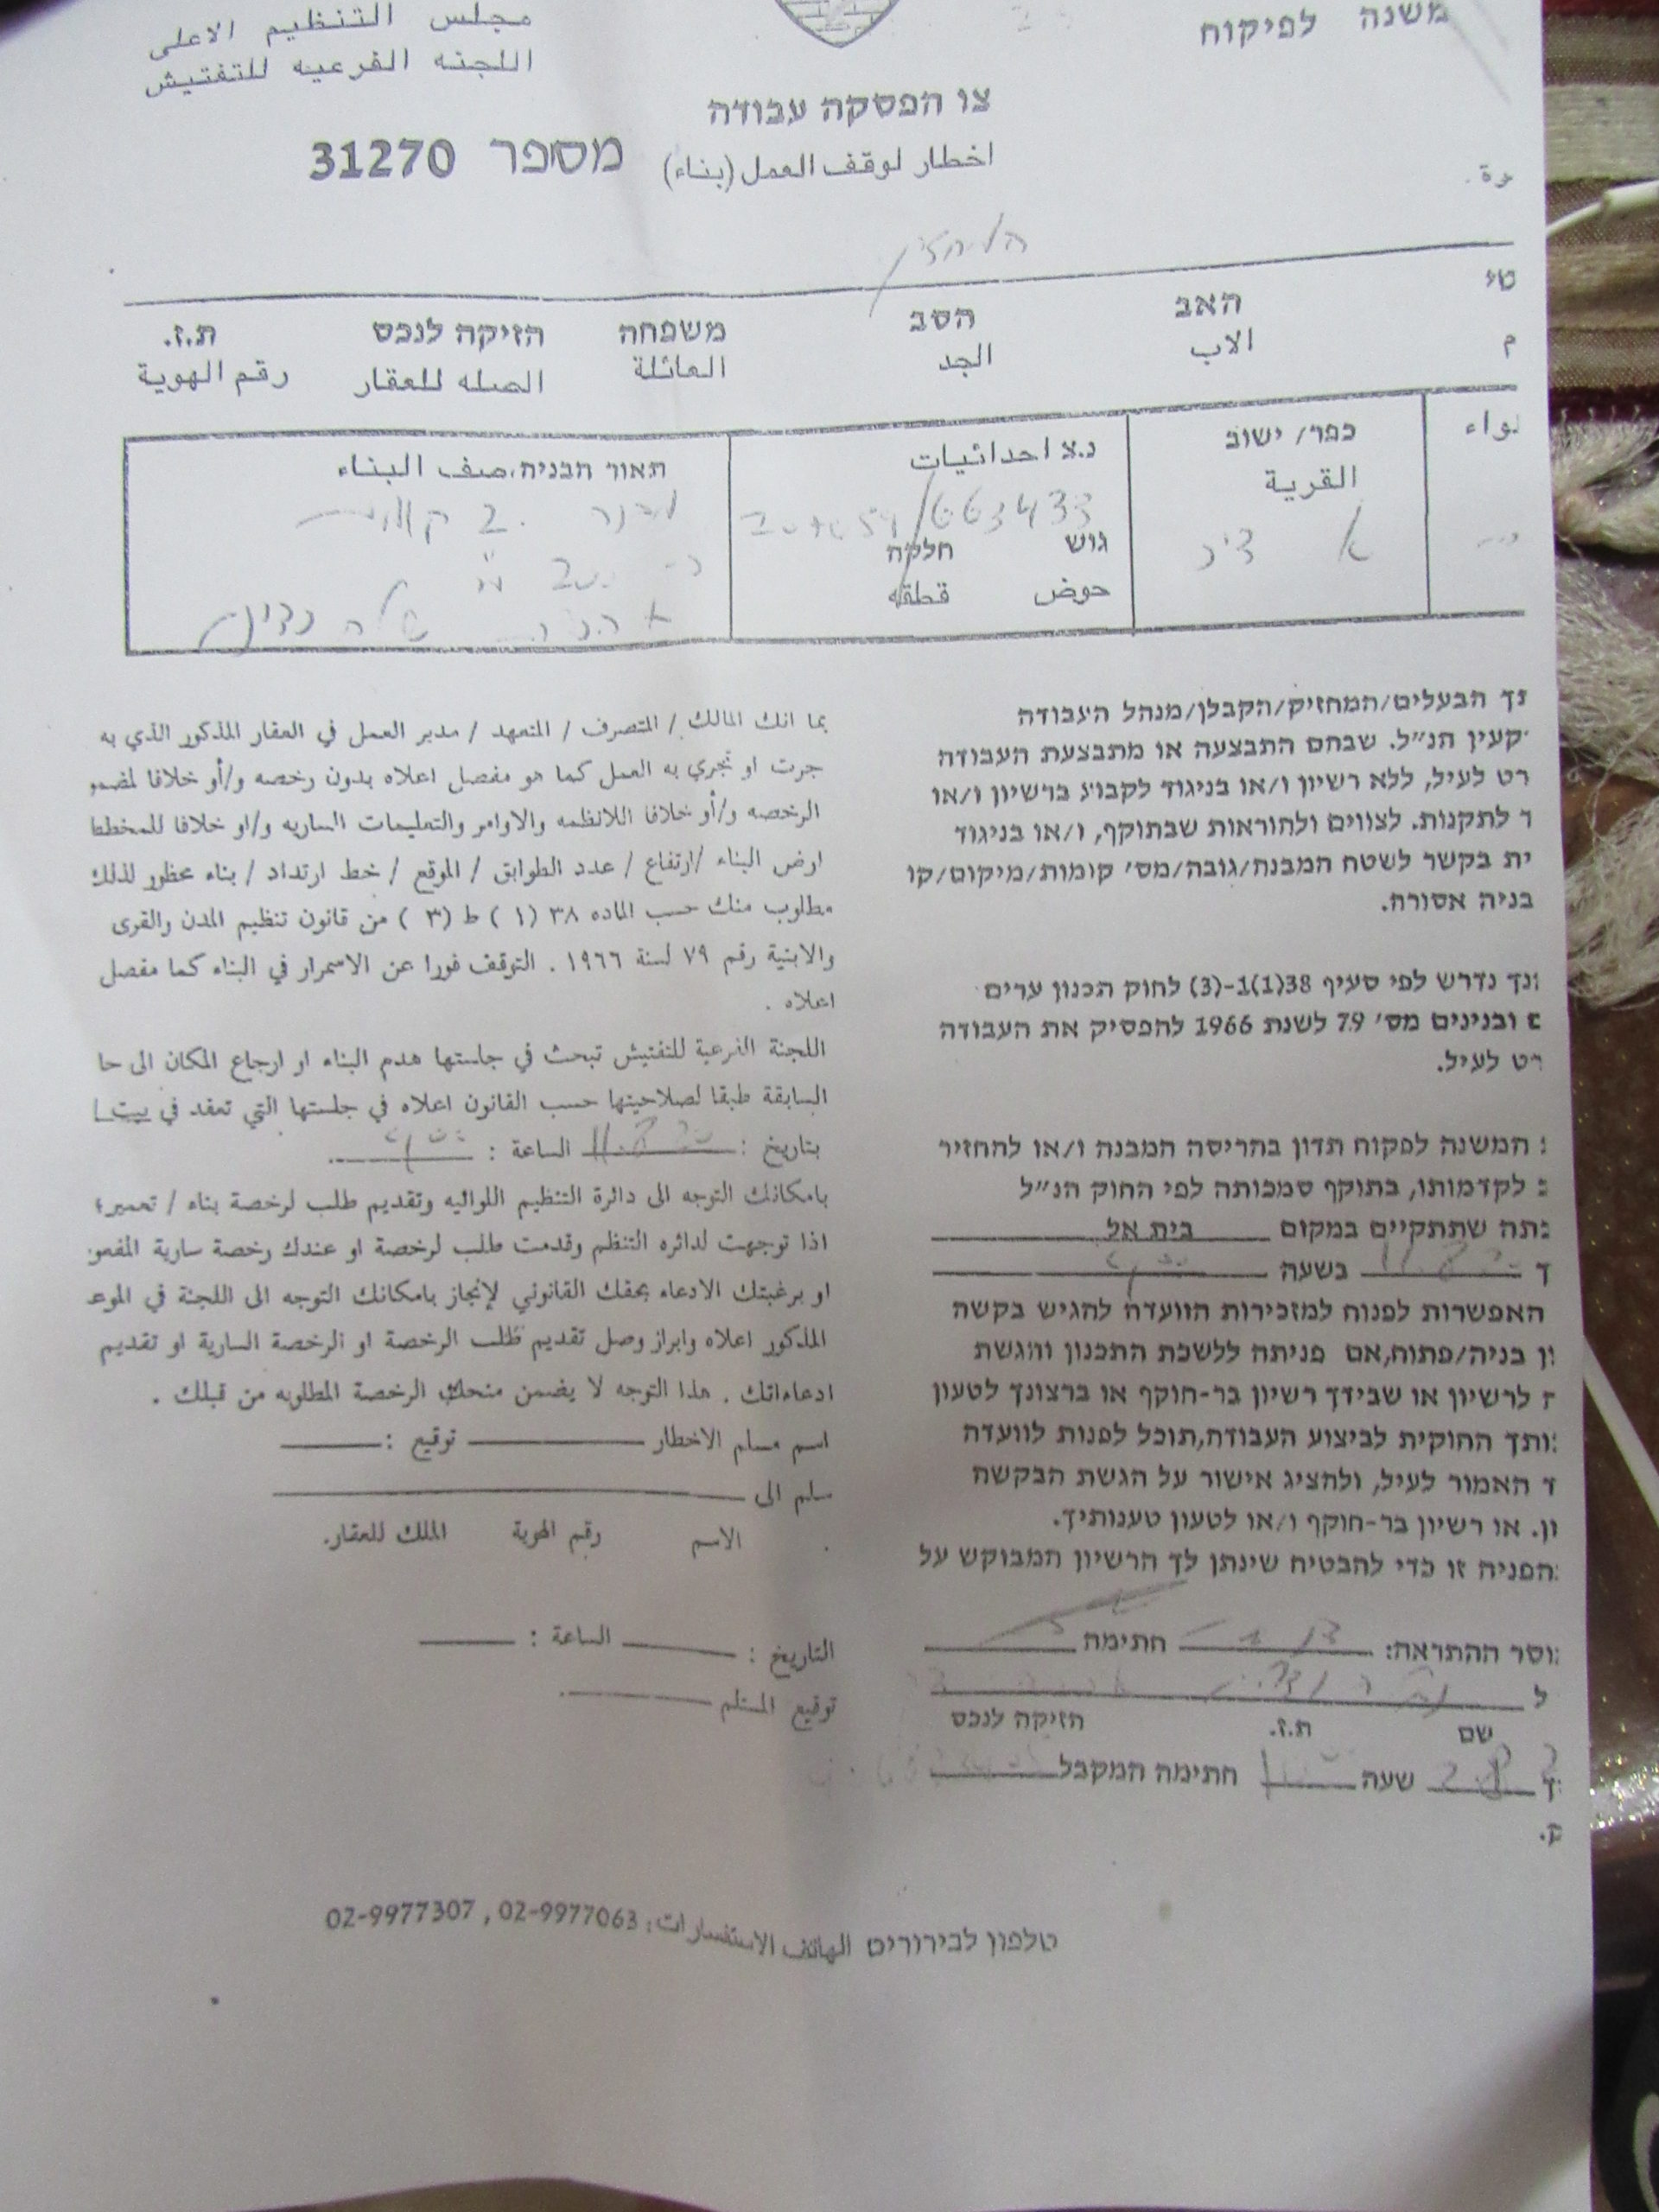 משנה לפיקוח
مجلس التنظيم الاعلى
اللجنه الفرعيه للتفتيش
צו הפסקה עבודה
اخطار لوقف العمل (بناء) מספר 31270
האב הסב משפחה הזיקה לנכס ת.ז.
الاب الجد العائلة الصله للعقار رقم الهوية
לواء
כפר/ ישוב
القرية
נ.צ احداثيات
663433
גוש חלקה
حوض قطعه
תאור הבניה. صف البناء
נך הבעלים/המחזיק/הקבלן/מנהל העבודה
קעין הנ״ל. שבהם התבצעה או מתבצעת העבודה
רט לעיל, ללא רשיון ו/או בניגוד לקבוע ברשיון ו/או
ד לתקנות. לצווים ולהוראות שבתוקף, ו/או בניגוד
ית בקשר לשטח המבנה/גובה/מס׳ קומות/מיקום/קו
בניה אסורה.
נך נדרש לפי סעיף 38(1)1-(3) לחוק תכנון ערים
ם ובנינים מס׳ 79 לשנת 1966 להפסיק את העבודה
רט לעיל.
המשנה לפקוח תדון בהריסה המבנה ו/או להחזיר
לקדמותו, בתוקף סמכותה לפי החוק הנ״ל
תה שתתקיים במקום בית אל
בשעה
האפשרות לפנות למזכירות הוועדה להגיש בקשה
ון בניה/פתוח,אם פניתה ללשכת התכנון והגשת
ה לרשיון או שבידך רשיון בר-תוקף או ברצונך לטעון
ותך החוקית לביצוע העבודה,תוכל לפנות לוועדה
ד האמור לעיל, ולהציג אישור על הגשת הבקשה
ון. או רשיון בר-תוקף ו/או לטעון טענותיך.
הפניה זו כדי להבטיח שינתן לך הרשיון המבוקש על
וסר ההתראה: חתימה
ל
שם ת.ז. הזיקה לנכס
שעה חתימה המקבל
ק.
بما انك المالك / المتصرف / المتعهد / مدير العمل في العقار المذكور الذي به
جرت او تجري به العمل كما هو مفصل اعلاه بدون رخصه و/أو خلافا لمضمو
الرخصه و/أو خلافا اللانظمه والاوامر والتعليمات الساريه و/او خلافا للمخطط
ارض البناء /ارتفاع / عدد الطوابق / الموقع / خط ارتداد / بناء محظور لذلك
مطلوب منك حسب الماده ٣٨ (١) ط (٣) من قانون تنظيم المدن والقرى
والابنية رقم ٧٩ لسنة ١٩٦٦ . التوقف فورا عن الاسمرار في البناء كما مفصل
اعلاه .
اللجنة الفرعية للتفتيش تبحث في جلستها هدم البناء او ارجاع المكان الى حا
السابقة طبقا لصلاحيتها حسب القانون اعلاه في جلستها التي تعقد في بيت ا
بتاريخ : الساعة :
بامكانك التوجه الى دائرة التنظيم اللوائيه وتقديم طلب لرخصة بناء / تعمير؛
اذا توجهت لدائره التنظم وقدمت طلب لرخصة او عندك رخصة سارية المفعو
او برغبتك الادعاء بحقك القانوني لإنجاز بامكانك التوجه الى اللجنة في الموع
المذكور اعلاه وابراز وصل تقديم طلب الرخصة او الرخصة السارية او تقديم
ادعاءاتك . هذا التوجه لا يضمن منحك الرخصة المطلوبه من قبلك .
اسم مسلم الاخطار توقيع :
سلم الى
الاسم رقم الهوية الملك للعقار.
التاريخ : الساعة :
توقيع المستلم
טלפון לבירורים الهاتف الاستفسارات: 02-9977063 , 02-9977307